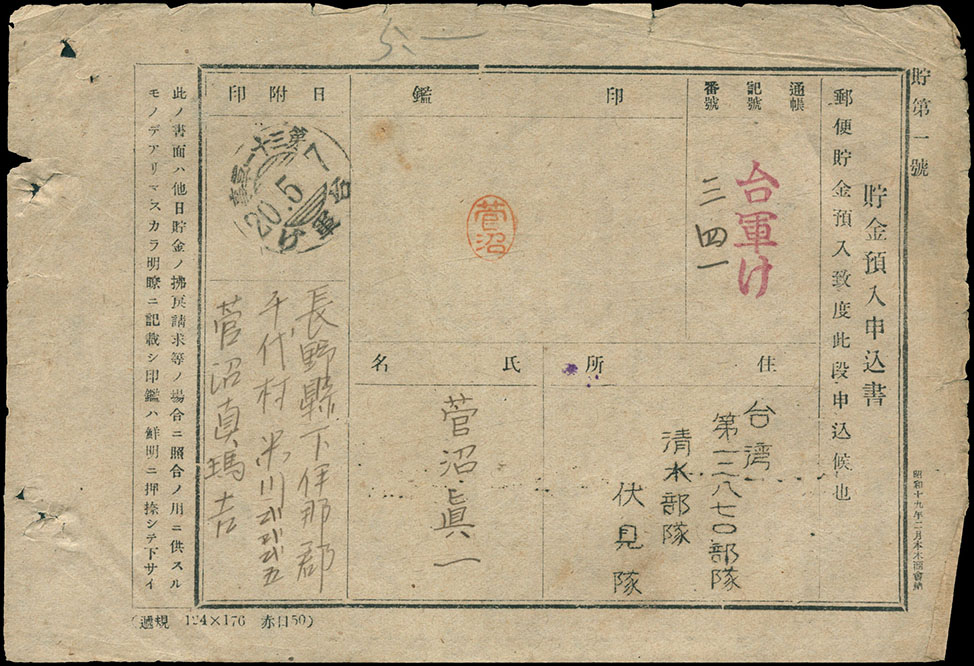 貯第一號
貯金預入申込書
郵便貯金預入致度此段申込候也
通帳
記號
番號
台軍け
三四一
印鑑
菅沼
日附印
第三十一号
20.5.7
台軍
け
住所
台湾
第一二八七〇部隊
清水部隊
伏見隊
氏名
菅沼眞一
長野縣下伊那郡
千代村米川
菅沼真瑪吉
此ノ書面ハ他日貯金ノ拂戻請求等ノ場合ニ照合ノ用ニ供スル
モノデアリマスカラ明瞭ニ記載シ印鑑ハ鮮明ニ押捺シテ下サイ
(遞規 124×176 赤口50)
昭和十九年二月